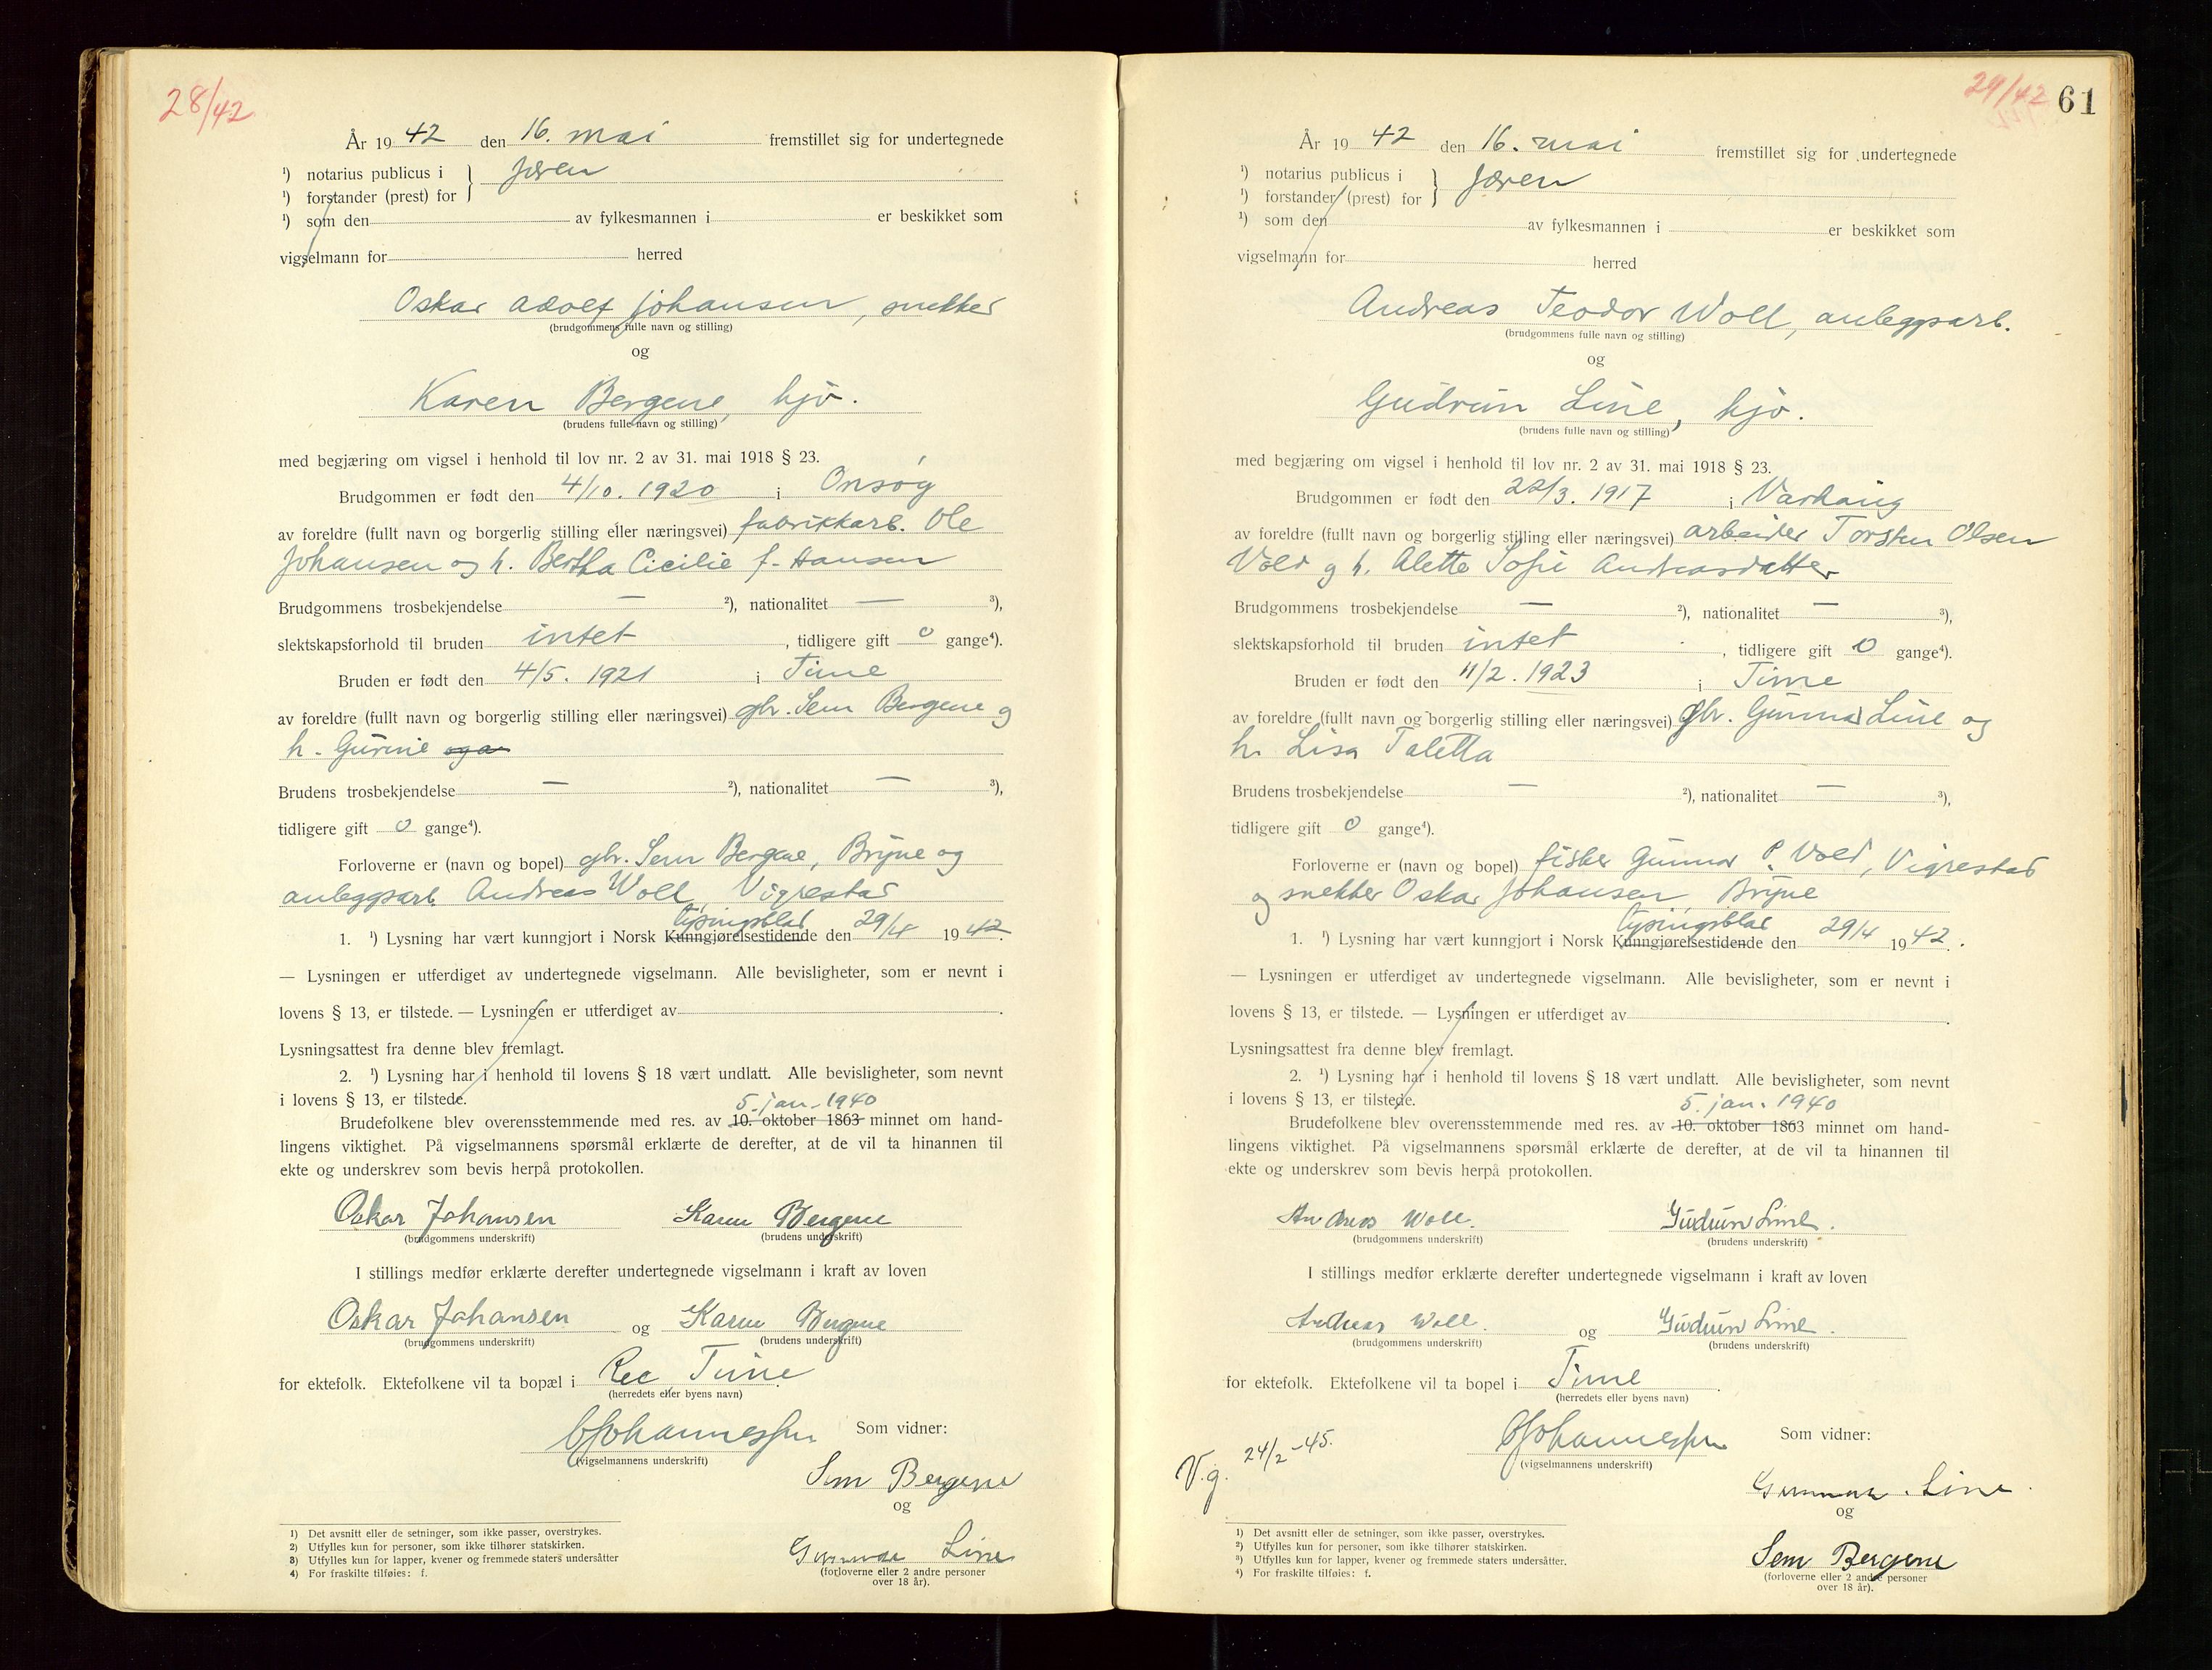 28/42
År 19 42 den 16. mai fremstillet sig for undertegnede
¹) notarius publicus i } Jæren
¹) forstander (prest) for
¹) som den av fylkesmannen i er beskikket som
vigselmann for herred
Oskar Adolf Johansen, snekker
(brudgommens fulle navn og stilling)
og
Karen Bergene, hjv.
(brudens fulle navn og stilling)
med begjæring om vigsel i henhold til lov nr. 2 av 31. mai 1918 § 23.
Brudgommen er født den 4/10. 1920 i Onsøy
av foreldre (fullt navn og borgerlig stilling eller næringsvei) fabrikkarb. Ole
Johansen og h. Bertha Cicilie f. Hansen
Brudgommens trosbekjendelse — ²), nationalitet — ³),
slektskapsforhold til bruden intet, tidligere gift 0 gange⁴).
Bruden er født den 4/5. 1921 i Time
av foreldre (fullt navn og borgerlig stilling eller næringsvei) gbr. Sem Bergene og
h. Gurine
Brudens trosbekjendelse — ²), nationalitet — ³),
tidligere gift 0 gange⁴).
Forloverne er (navn og bopel) gbr. Sem Bergene, Bryne og
anleggsarb. Andreas Woll, Vigrestad
lysingsblad
1. ¹) Lysning har vært kunngjort i Norsk Kunngjørelsestidende den 29/4 1942.
— Lysningen er utferdiget av undertegnede vigselmann. Alle bevisligheter, som er nevnt i
lovens § 13, er tilstede. — Lysningen er utferdiget av .
Lysningsattest fra denne blev fremlagt.
2. ¹) Lysning har i henhold til lovens § 18 vært undlatt. Alle bevisligheter, som nevnt
i lovens § 13, er tilstede.
5. jan. 1940
Brudefolkene blev overensstemmende med res. av 10. oktober 1863 minnet om hand-
lingens viktighet. På vigselmannens spørsmål erklærte de derefter, at de vil ta hinannen til
ekte og underskrev som bevis herpå protokollen.
Oskar Johansen Karen Bergene
(brudgommens underskrift) (brudens underskrift)
I stillings medfør erklærte derefter undertegnede vigselmann i kraft av loven
Oskar Johansen og Karen Bergene
(brudgommens underskrift) (brudens underskrift)
for ektefolk. Ektefolkene vil ta bopæl i Time
(herredets eller byens navn)
Johannessen Som vidner:
(vigselmannens underskrift)
Sem Bergene
og
Gunnar Line
(forloverne eller 2 andre personer
over 18 år).
1) Det avsnitt eller de setninger, som ikke passer, overstrykes.
2) Utfylles kun for personer, som ikke tilhører statskirken.
3) Utfylles kun for lapper, kvener og fremmede staters undersåtter
4) For fraskilte tilføies: f.
29/42 61
År 19 42 den 16. mai fremstillet sig for undertegnede
¹) notarius publicus i } Jæren
¹) forstander (prest) for
¹) som den av fylkesmannen i er beskikket som
vigselmann for herred
Andreas Teodor Woll, anleggsarb.
(brudgommens fulle navn og stilling)
og
Gudrun Line, hjv.
(brudens fulle navn og stilling)
med begjæring om vigsel i henhold til lov nr. 2 av 31. mai 1918 § 23.
Brudgommen er født den 22/3. 1917 i Varhaug
av foreldre (fullt navn og borgerlig stilling eller næringsvei) arbeider Torsten Olsen
Vold og h. Alette Sofie Andreasdatter
Brudgommens trosbekjendelse — ²), nationalitet — ³),
slektskapsforhold til bruden intet, tidligere gift 0 gange⁴).
Bruden er født den 11/2. 1923 i Time
av foreldre (fullt navn og borgerlig stilling eller næringsvei) gbr. Gunnar Line og
h. Lisa Taletta
Brudens trosbekjendelse — ²), nationalitet — ³),
tidligere gift 0 gange⁴).
Forloverne er (navn og bopel) fisker Gunnar P. Vold, Vigrestad
og snekker Oskar Johansen, Bryne
lysingsblad
1. ¹) Lysning har vært kunngjort i Norsk Kunngjørelsestidende den 29/4 1942.
— Lysningen er utferdiget av undertegnede vigselmann. Alle bevisligheter, som er nevnt i
lovens § 13, er tilstede. — Lysningen er utferdiget av .
Lysningsattest fra denne blev fremlagt.
2. ¹) Lysning har i henhold til lovens § 18 vært undlatt. Alle bevisligheter, som nevnt
i lovens § 13, er tilstede.
5. jan. 1940
Brudefolkene blev overensstemmende med res. av 10. oktober 1863 minnet om hand-
lingens viktighet. På vigselmannens spørsmål erklærte de derefter, at de vil ta hinannen til
ekte og underskrev som bevis herpå protokollen.
Andreas Woll. Gudrun Line.
(brudgommens underskrift) (brudens underskrift)
I stillings medfør erklærte derefter undertegnede vigselmann i kraft av loven
Andreas Woll. og Gudrun Line.
(brudgommens underskrift) (brudens underskrift)
for ektefolk. Ektefolkene vil ta bopel i Time.
(herredets eller byens navn)
Johannessen Som vidner:
(vigselmannens underskrift)
V.g. 24/2-45.
Gunnar Line.
og
Sem Bergene
(forloverne eller 2 andre personer
over 18 år).
1) Det avsnitt eller de setninger, som ikke passer, overstrykes.
2) Utfylles kun for personer, som ikke tilhører statskirken.
3) Utfylles kun for lapper, kvener og fremmede staters undersåtter.
4) For fraskilte tilføies: f.